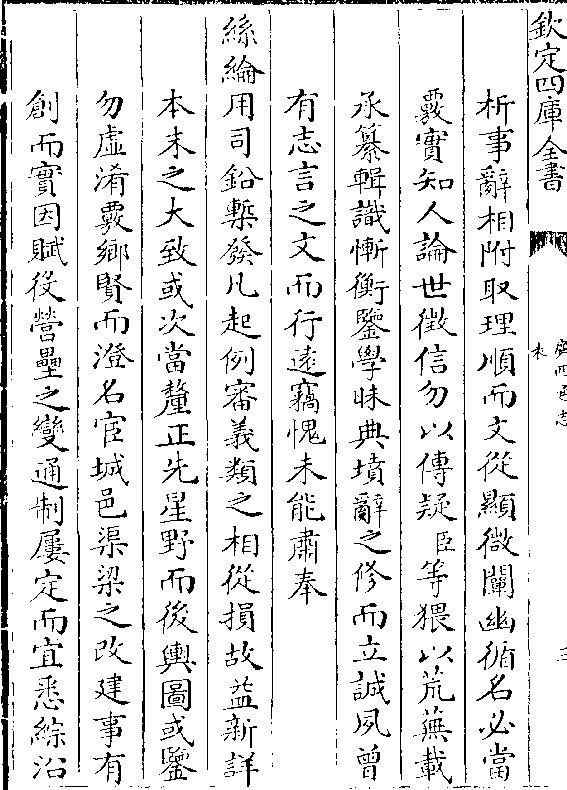 欽定四庫全書
廣西通志
表
三
析事辭相附取理順而文從顯微闡幽循名必當
覈實知人論世徵信勿以傳疑臣等猥以荒蕪載
承纂輯識慚衡鑒學昧典墳辭之修而立誠夙曾
有志言之文而行遠竊愧未能肅奉
絲綸用司鉛槧發凡起例審義類之相從損故益新詳
本末之大致或次當釐正先星野而後輿圖或鑒
勿虛淆覈鄉賢而澄名宦城邑渠梁之改建事有
創而實因賦役營壘之變通制屢定而宜悉綜沿